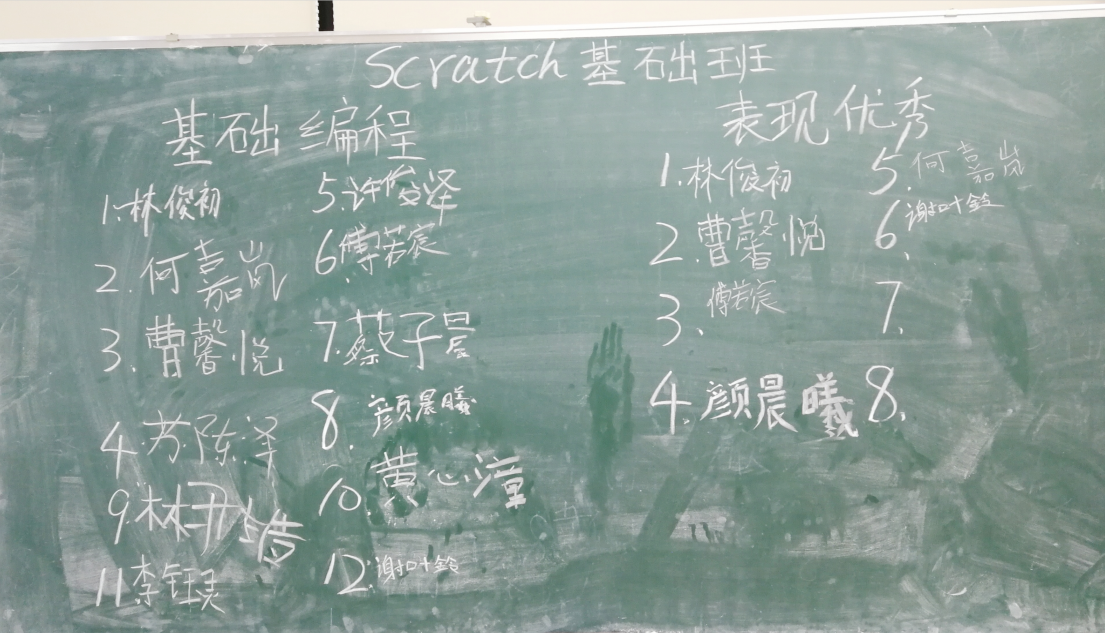 Scratch基础班
基础编程
表现优秀
1.林俊初
5.许俊泽
2.何嘉岚
6.傅若宸
3.曹馨悦
7.蔡子晨
4.苏陈泽
8.颜晨曦
9林丑
10.黄心潼
11.李钰灵
12.谢叶铃
1.林俊初
5.何嘉岚
2.曹馨悦
6、谢叶铃
3、傅若宸
7、
4.颜晨曦
8、